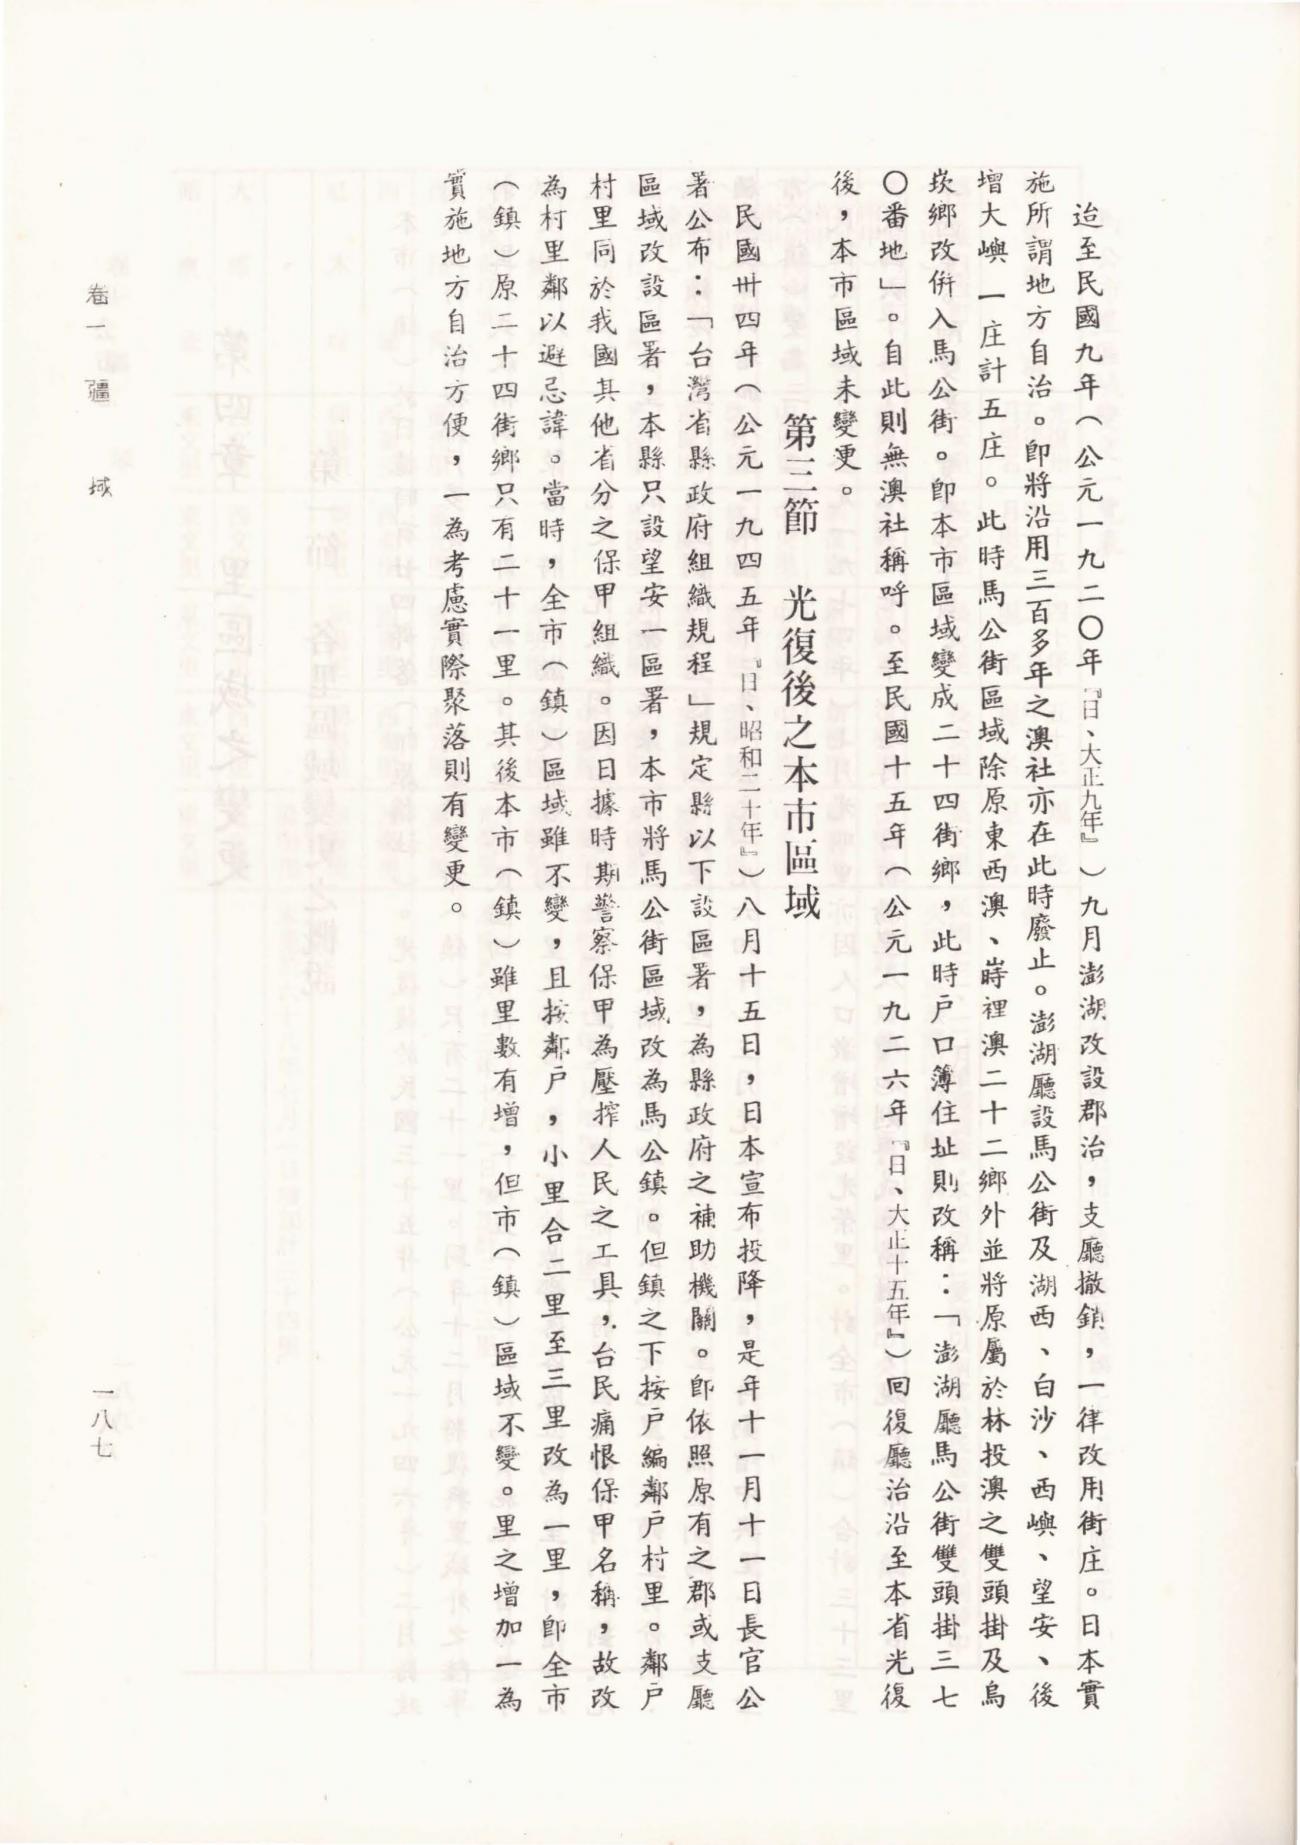 迨至民國九年（公元一九二〇年『日、大正九年』）九月澎湖改設郡治，支廳撤銷，一律改用街庄。日本實
施所謂地方自治。即將沿用三百多年之澳社亦在此時廢止。澎湖廳設馬公街及湖西、白沙、西嶼、望安、後
增大嶼一庄計五庄。此時馬公街區域除原東西澳、嵵裡澳二十二鄉外並將原屬於林投澳之雙頭掛及烏
崁鄉改併入馬公街。即本市區域變成二十四街鄉，此時戶口簿住址則改稱：「澎湖廳馬公街雙頭掛三七
〇番地」。自此則無澳社稱呼。至民國十五年（公元一九二六年『日、大正十五年』）回復廳治沿至本省光復
後，本市區域未變更。
第三節　光復後之本市區域
民國卅四年（公元一九四五年『日、昭和二十年』）八月十五日，日本宣布投降，是年十一月十一日長官公
署公布：「台灣省縣政府組織規程」規定縣以下設區署，為縣政府之補助機關。即依照原有之郡或支廳
區域改設區署，本縣只設望安一區署，本市將馬公街區域改為馬公鎮。但鎮之下按戶編鄰戶村里。鄰戶
村里同於我國其他省分之保甲組織。因日據時期警察保甲為壓搾人民之工具，台民痛恨保甲名稱，故改
為村里鄰以避忌諱。當時，全市（鎮）區域雖不變，且按鄰戶，小里合二里至三里改為一里，即全市
（鎮）原二十四街鄉只有二十一里。其後本市（鎮）雖里數有增，但市（鎮）區域不變。里之增加一為
實施地方自治方便，一為考慮實際聚落則有變更。
卷一　疆　域
一八七